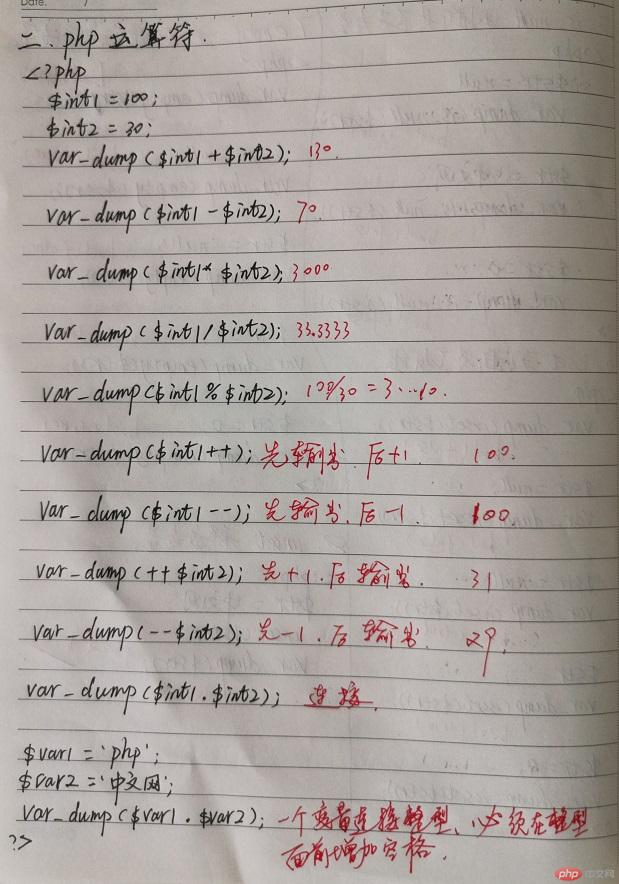 Date.
二、php 运算符.
<?php
$int1 = 100;
$int2 = 30;
var_dump ($int1 + $int2); 130.
var_dump ($int1 - $int2); 70.
var_dump ($int1* $int2); 3000
var_dump ($int1 / $int2); 33.3333
var_dump ($int1 % $int2); 100/30 = 3...10.
var_dump ($int1++); 先输出. 后+1. 100.
var_dump ($int1--); 先输出. 后-1. 100
var_dump (++$int2); 先+1. 后输出. 31
var_dump (--$int2); 先-1. 后输出. 29.
var_dump ($int1.$int2); 连接.
$var1 = 'php';
$var2 = '中文网';
var_dump ($var1 . $var2); 一个变量连接整型、必须在整型
?> 面前增加空格.
php 中文网